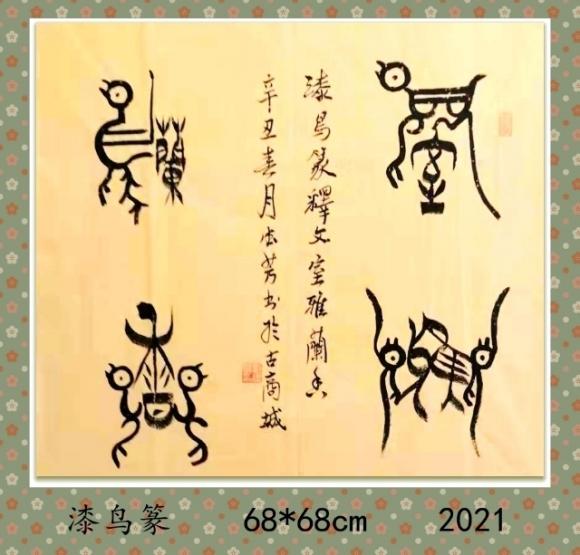 室雅
漆鸟篆釋文室雅蘭香
辛丑春月芳书於古商城
蘭香
漆鸟篆 68*68cm 2021